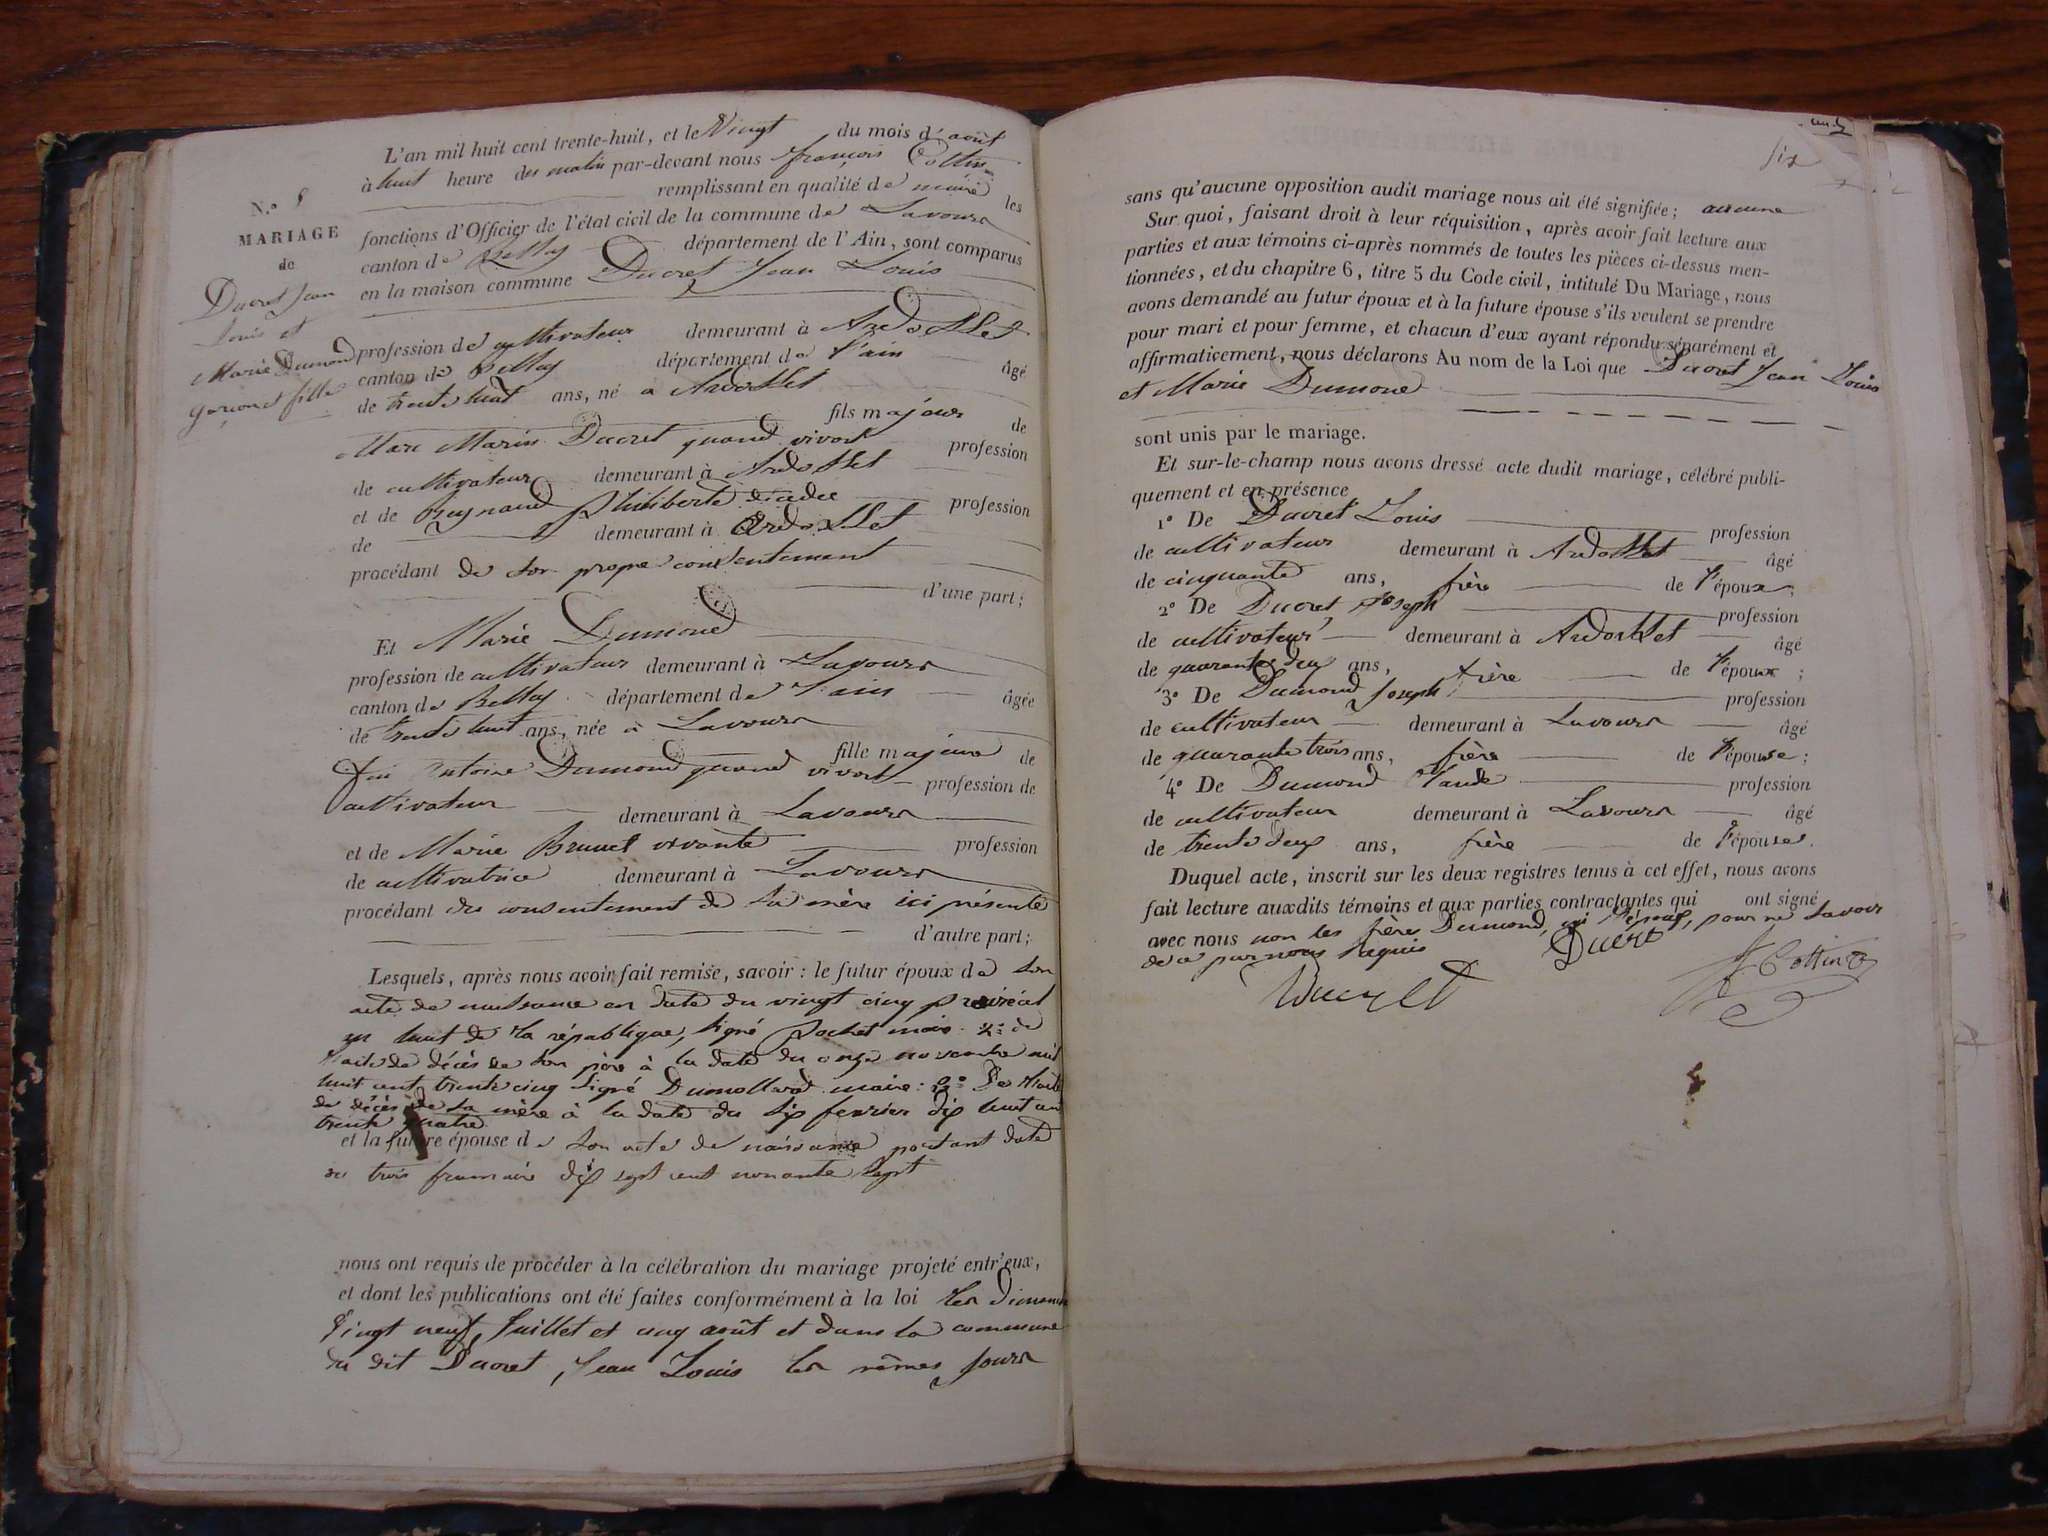 L'an mil huit cent trente-huit, et le Vingt du mois d'août
à huit heure du matin par-devant nous françois Cottin
remplissant en qualité de maire les
fonctions d'Officier de l'état civil de la commune de Lavours
canton de Belley département de l'Ain, sont comparus
en la maison commune Ducret Jean Louis
profession de cultivateur demeurant à Ardosset
canton de Belley département de l'ain âgé
de trente huit ans, né à Ardosset
fils majeur de
Marc Marin Ducret quand vivoit profession
de cultivateur demeurant à Ardosset
et de Reynaud Philiberte décédée profession
de demeurant à Ardosset
procédant de son propre consentement
d'une part;
Et Marie Dumond
profession de cultivateur demeurant à Lavours
canton de Belley département de l'ain âgée
de trente huit ans, née à Lavours
fille majeure de
feu Antoine Dumond quand vivoit profession de
cultivateur demeurant à Lavours
et de Marie Brunet vivante profession
de cultivatrice demeurant à Lavours
procédant du consentement de sa mère ici présente
d'autre part;
Lesquels, après nous avoir fait remise, savoir: le futur époux de son
acte de naissance en date du vingt cinq prairéal
an huit de la république, signé Pochet maire. 2º de
l'acte de décès de son père à la date du onze novembre mil
huit cent trente cinq signé Dumollard maire: 3º De l'acte
de décès de sa mère à la date du six fevrier dix huit cent
trente quatre
et la future épouse de son acte de naissance portant date
du trois frumaire dix sept cent nonante sept
nous ont requis de procéder à la célébration du mariage projeté entr'eux,
et dont les publications ont été faites conformément à la loi les dimanche
Vingt neuf Juillet et cinq août et dans la commune
du dit Ducret, Jean Louis les mêmes jours
N.º
MARIAGE
de
Ducret Jean
Louis et
Marie Dumond
garçon et fille
six
sans qu'aucune opposition audit mariage nous ait été signifiée; aucune
Sur quoi, faisant droit à leur réquisition, après avoir fait lecture aux
parties et aux témoins ci-après nommés de toutes les pièces ci-dessus men-
tionnées, et du chapitre 6, titre 5 du Code civil, intitulé Du Mariage, nous
avons demandé au futur époux et à la future épouse s'ils veulent se prendre
pour mari et pour femme, et chacun d'eux ayant répondu séparément et
affirmativement, nous déclarons Au nom de la Loi que Ducret Jean Louis
et Marie Dumond
sont unis par le mariage.
Et sur-le-champ nous avons dressé acte dudit mariage, célébré publi-
quement et en présence
1º De Ducret Louis profession
de cultivateur demeurant à Ardosset âgé
de cinquante ans, frère de l'époux;
2º De Ducret Joseph profession
de cultivateur demeurant à Ardosset âgé
de quarante deux ans, frère de l'époux;
3º De Dumond Joseph profession
de cultivateur demeurant à Lavours âgé
de quarante trois ans, frère de l'épouse;
4º De Dumond Claude profession
de cultivateur demeurant à Lavours âgé
de trente deux ans, frère de l'épouse.
Duquel acte, inscrit sur les deux registres tenus à cet effet, nous avons
fait lecture auxdits témoins et aux parties contractantes qui ont signé
avec nous non les frères Dumond, ni l'épouse, pour ne savoir
de ce par nous requis
Ducret
Ducret
Cottin